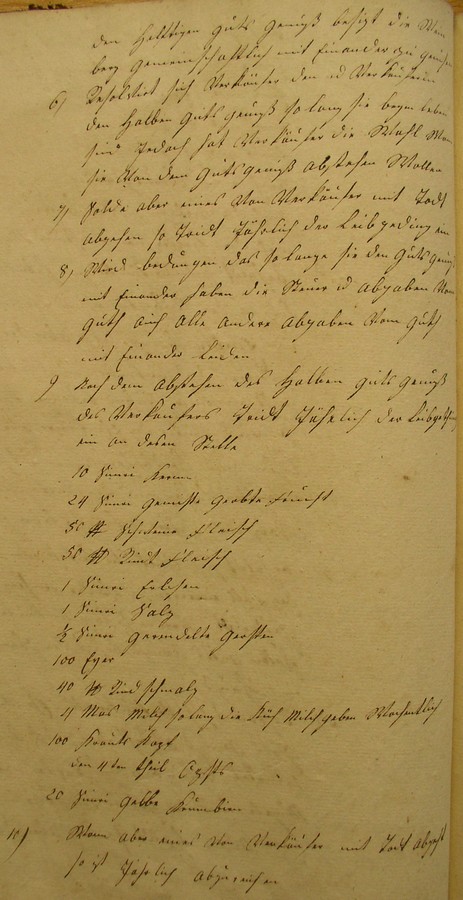 den Hälftigen Guts Genuß besizt die Wein
berg gemeinschaftlich mit Einander zu genießen
6) Resolvirt sich Verkäufer den u Verkäuferin
den Halben Guts genuß so lang sie beym Leben
sind Jedoch hat Verkäufer die Wahl Wan
sie Von dem Gutsgenuß Abstehen Wollen
7) Solde aber eines Von Verkäufer mit Todt
abgehen so Tridt Jährlich der Leibgeding ein
8) Wird bedungen das so lange sie den Guts genuß
mit Einander haben die Steuer u Abgaben Vom
Guth auch Alle Andere Abgaben Vom Guth
mit Einander Leiden
9 Nach dem Abstehen des Halben guts Genuß
des Verkäufers Tridt Jährlich der Leibgeding
ein an desen Stelle
10 Simri Kernen
24 Simri Gemischte Frucht
50 ℔ Schweine Fleisch
50 ℔ Rindt Fleisch
1 Simri Erbsen
1 Simri Salz
½ Simri Gerendelte Gersten
100 Eyer
40 ℔ Rindschmalz
4 Mas Milch so lang die Küh Milch geben Wochentlich
100 Krauts Köpf
den 4ten theil Obsts
20 Simri Gelbe Krumbirn
10) Wann aber eines Von Verkäufer mit Todt Abgeht
so ist Jährlich abzureichen